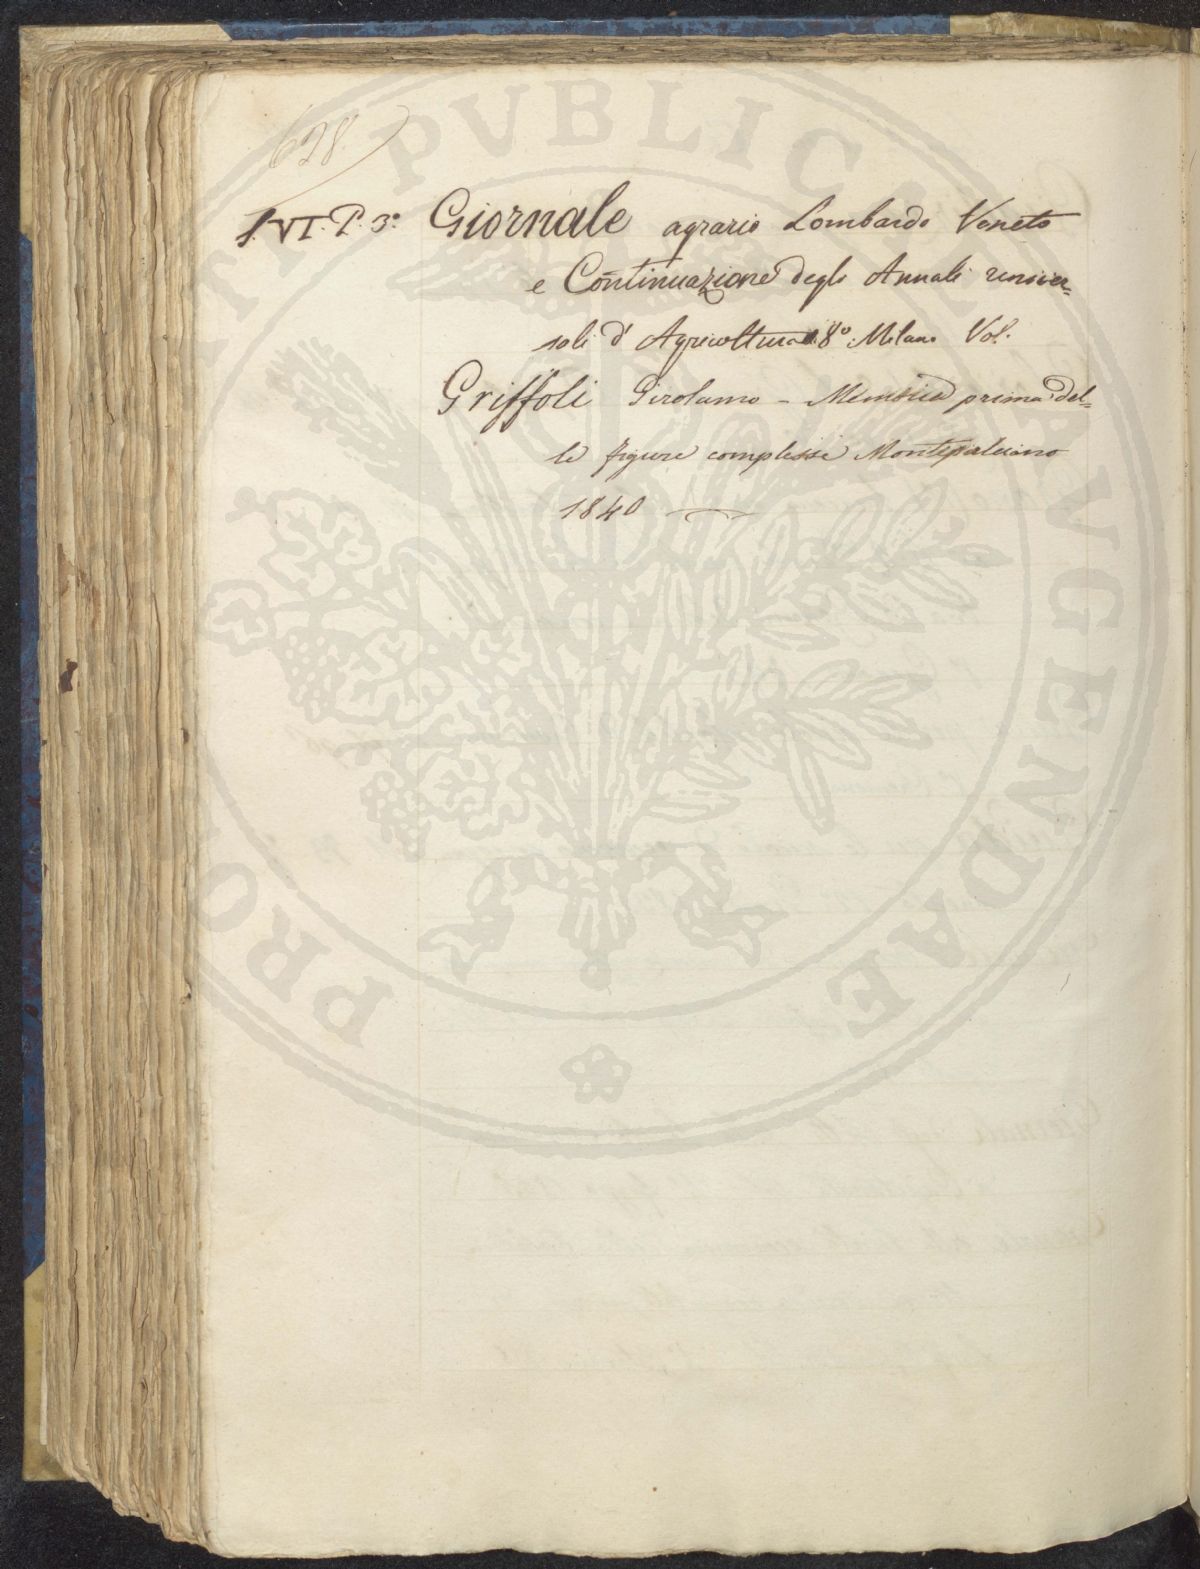 628.
S. VI. P. 3.° Giornale agrario Lombardo Veneto
e Continuazione degli Annali univer=
sali d' Agricoltura 8° Milano Vol.
Griffoli Girolamo - Memoria prima del=
le figure complesse Montepulciano
1840
PROSPERITATI PVBLICAE AVGENDAE